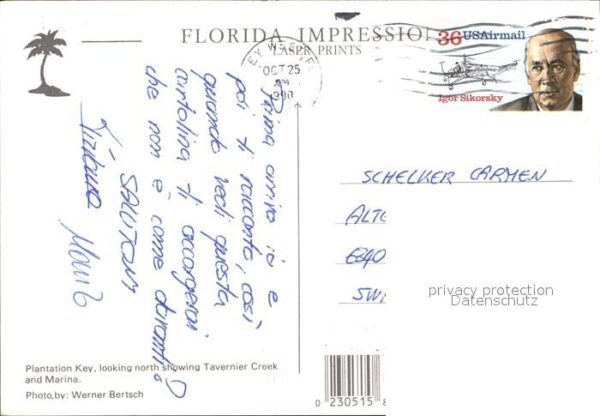 FLORIDA IMPRESSIO
LASER PRINTS
OCT 25
36 USAirmail
Igor Sikorsky
Prima arrivo io e
poi ti racconto, così
quando vedi questa
cartolina ti accorgerai
che non è come davanti!
SALUTONI
Tiziana
SCHELKER CARMEN
ALTE
6340
SWI
privacy protection
Datenschutz
Plantation Key, looking north showing Tavernier Creek
and Marina.
Photo, by: Werner Bertsch
0 230515 8